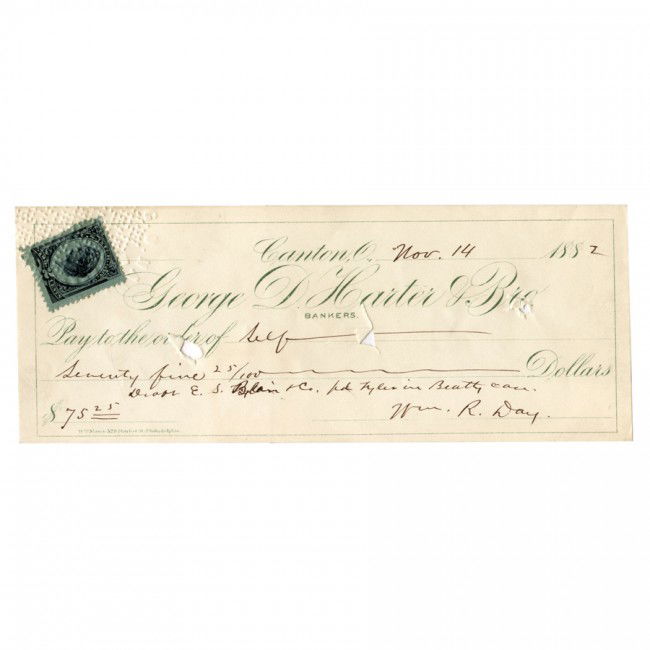 Canton, O. Nov. 14 1882
George D. Harter & Bro.
BANKERS.
Pay to the order of Self
Seventy five 25/100 Dollars
Draft E. S. & Co. pd in Beatty case.
$ 75 25
Wm. R. Day.